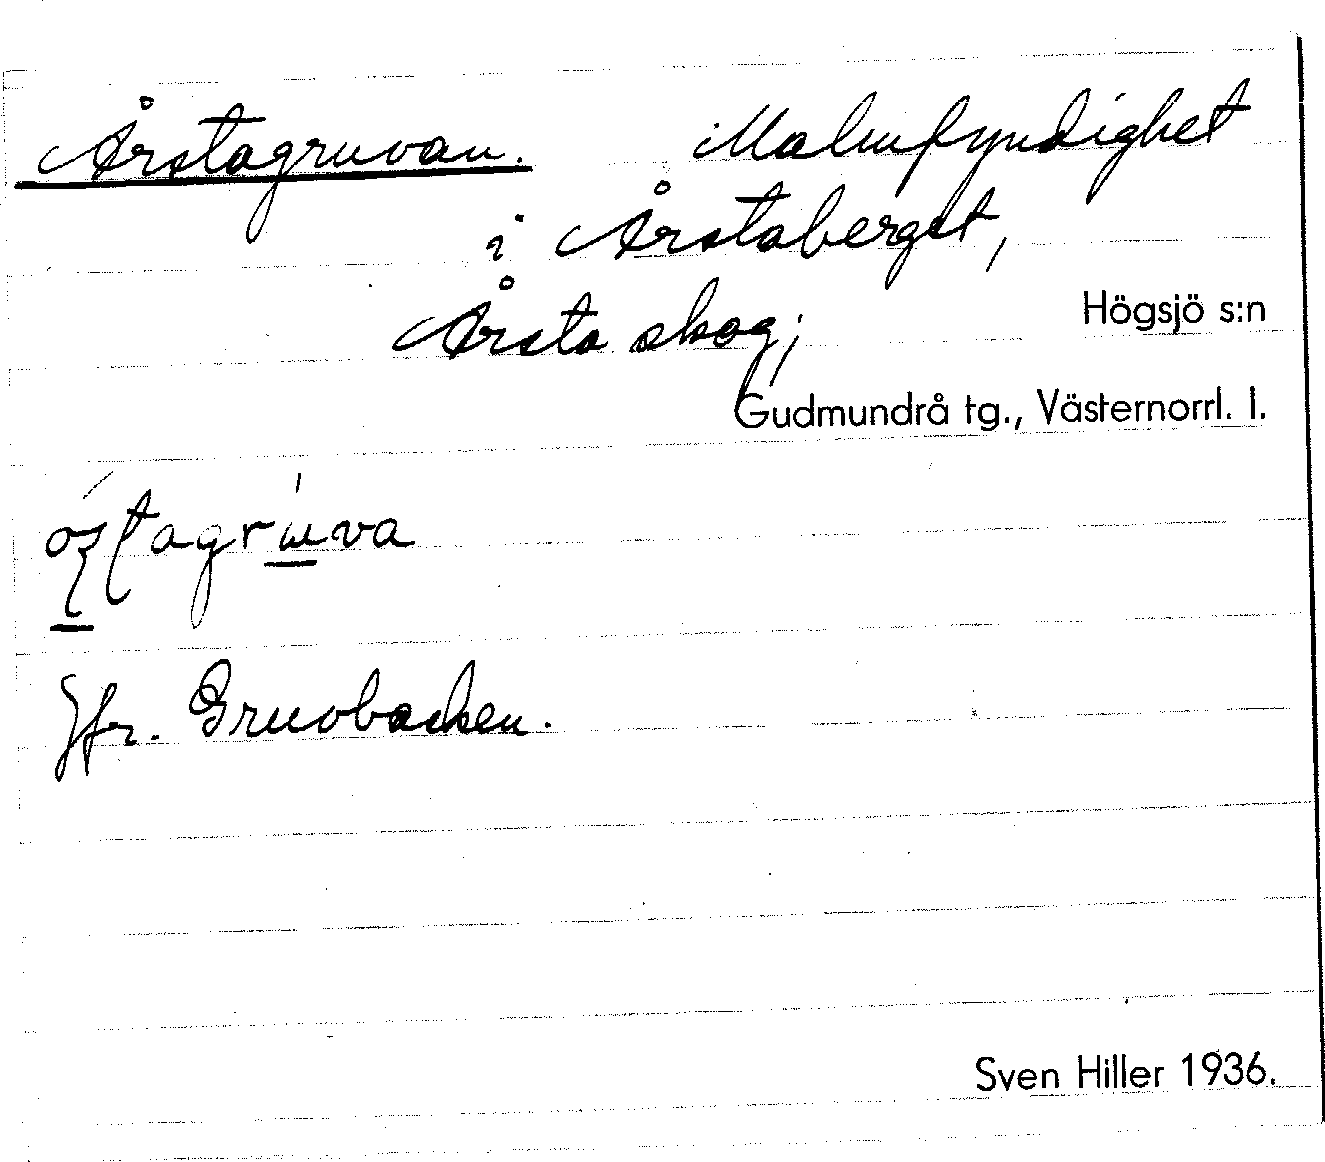 Årstagruvan. Malmfyndighet
i Årstaberget,
Årsta skog;
Högsjö s:n
Gudmundrå tg., Västernorrl. l.
Jfr. Gruvbacken.
Sven Hiller 1936.